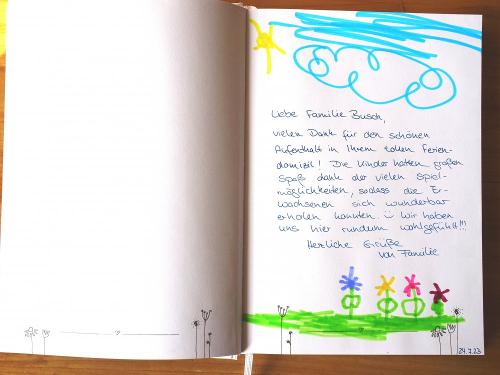 Liebe Familie Busch,
vielen Dank für den schönen
Aufenthalt in Ihrem tollen Ferien-
domizil! Die Kinder hatten großen
Spaß dank der vielen Spiel-
möglichkeiten, sodass die Er-
wachsenen sich wunderbar
erholen konnten. Wir haben
uns hier rundum wohlgefühlt!!!
Herzliche Grüße
von Familie
29.7.23